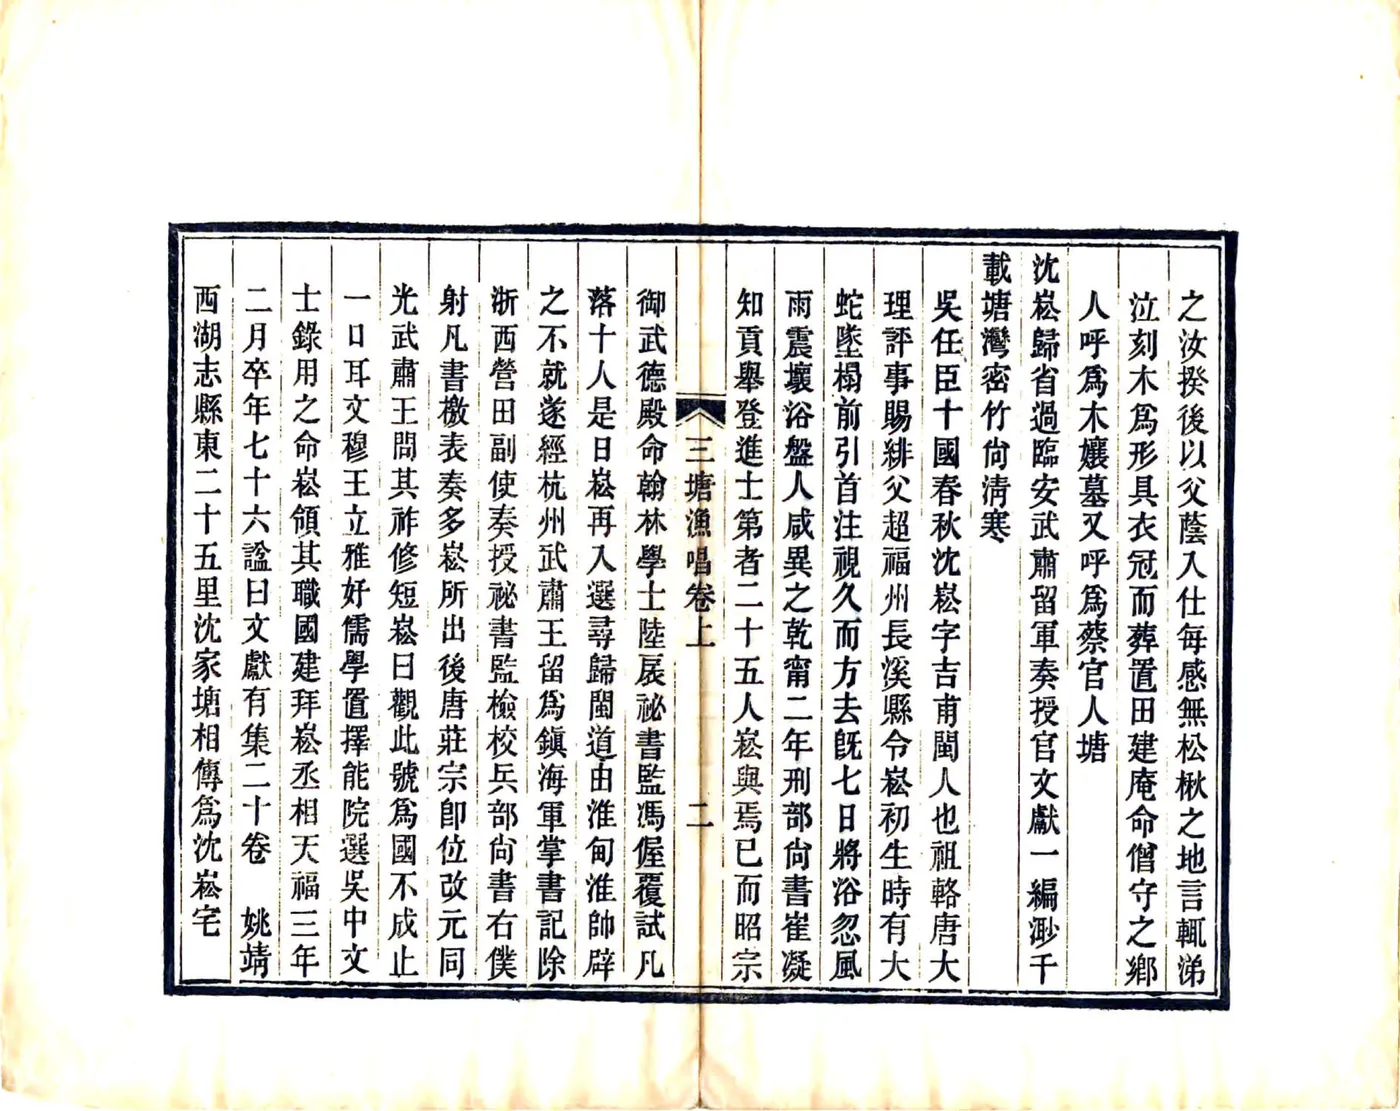 之汝揆後以父蔭入仕每感無松楸之地言輒涕
泣刻木爲形具衣冠而葬置田建庵命僧守之鄉
人呼爲木孃墓又呼爲蔡官人塘
沈崧歸省過臨安武肅留軍奏授官文獻一編渺千
載塘灣密竹尙淸寒
吳任臣十國春秋沈崧字吉甫閩人也祖輅唐大
理評事賜緋父超福州長溪縣令崧初生時有大
蛇墜榻前引首注視久而方去旣七日將浴忽風
雨震壞浴盤人咸異之乾甯二年刑部尙書崔凝
知貢舉登進士第者二十五人崧與焉已而昭宗
三塘漁唱卷上
二
御武德殿命翰林學士陸扆祕書監馮偓覆試凡
落十人是日崧再入選尋歸閩道由淮甸淮帥辟
之不就遂經杭州武肅王留爲鎭海軍掌書記除
浙西營田副使奏授祕書監檢校兵部尙書右僕
射凡書檄表奏多崧所出後唐莊宗卽位改元同
光武肅王問其祚修短崧曰觀此號爲國不成止
一口耳文穆王立雅好儒學置擇能院選吳中文
士錄用之命崧領其職國建拜崧丞相天福三年
二月卒年七十六諡曰文獻有集二十卷　姚靖
西湖志縣東二十五里沈家塘相傳爲沈崧宅